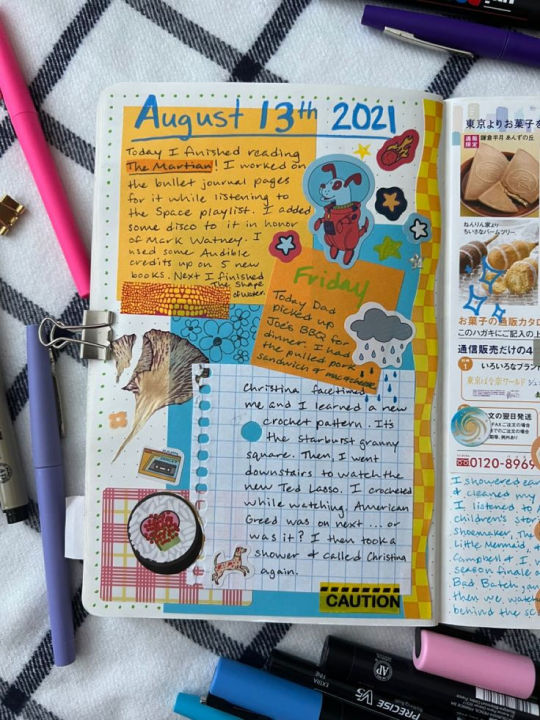 August 13th 2021
Today I finished reading
The Martian! I worked on
the bullet journal pages
for it while listening to
the Space playlist. I added
some disco to it in honor
of Mark Watney. I
used some Audible
credits up on 5 new
books. Next I finished
The Shape
of water.
Friday
Today Dad
picked up
Joe's BBQ for
dinner. I had
the pulled pork
sandwich & mac & cheese
Christina facetimed
me and I learned a new
crochet pattern. Its
the starburst granny
square. Then, I went
downstairs to watch the
new Ted Lasso. I crocheted
while watching. American
Greed was on next ... or
was it? I then took a
shower & called Christina
again.
CAUTION
東京よりお菓子を
通販限定
鎌倉半月 あんずの丘
ねんりん家より
ちいさなバームツリー
お菓子の通販カタロ
このハガキにご記入の上
通信販売だけの4
いろいろなブラン
東京ばな奈ワールド
文の翌日発送
0120-8969
I showered ear
& cleaned my
I listened to
children's stor
Shoemaker, The
Little Mermaid, &
Campbell & I
season finale
Bad Batch, an
then we watch
behind the sc
PRECISE V5
EXTRA FINE
AP